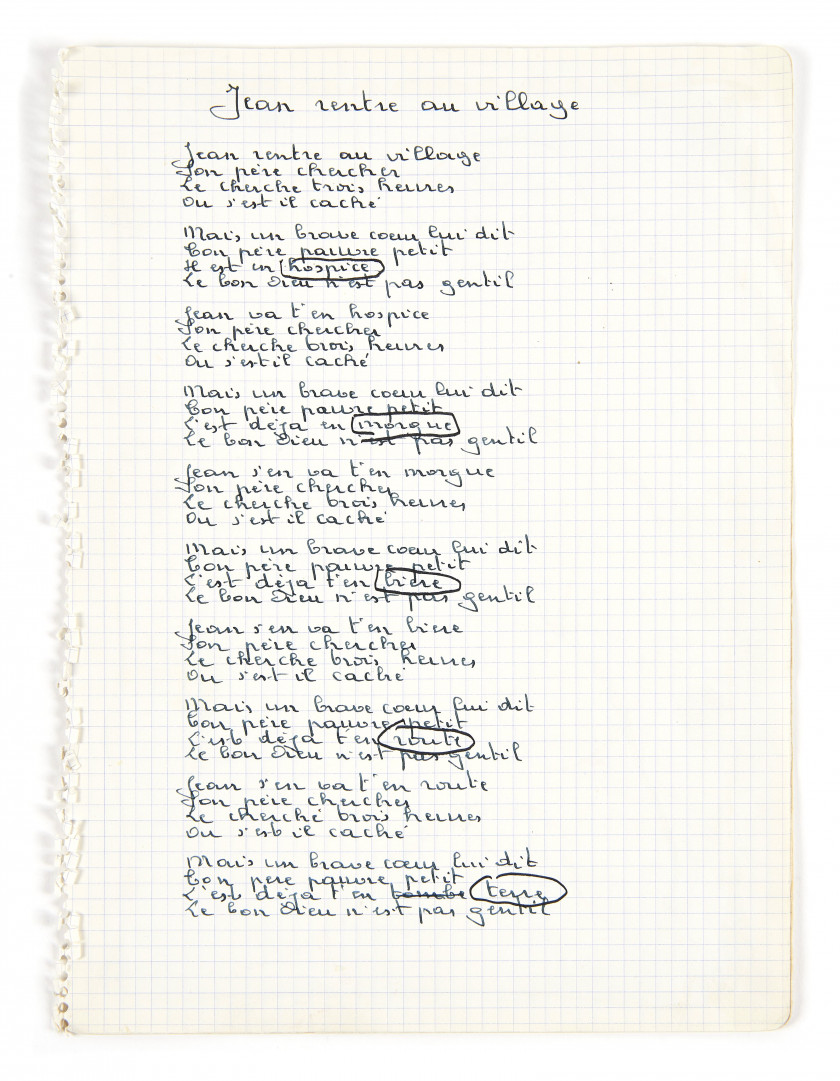 Jean rentre au village
Jean rentre au village
Son père chercher
Le cherche trois heures
Ou s'est il caché
Mais un brave coeur lui dit
Ton père pauvre petit
Il est en hospice
Le bon Dieu n'est pas gentil
Jean va t'en hospice
Son père chercher
Le cherche trois heures
Ou s'est il caché
Mais un brave coeur lui dit
Ton père pauvre petit
S'est déja en morgue
Le bon Dieu n'est pas gentil
Jean s'en va t'en morgue
Son père chercher
Le cherche trois heures
Ou s'est il caché
Mais un brave coeur lui dit
Ton père pauvre petit
S'est déja t'en bière
Le bon Dieu n'est pas gentil
Jean s'en va t'en bière
Son père chercher
Le cherche trois heures
Ou s'est il caché
Mais un brave coeur lui dit
Ton père pauvre petit
S'est déja t'en route
Le bon Dieu n'est pas gentil
Jean s'en va t'en route
Son père chercher
Le cherche trois heures
Ou s'est il caché
Mais un brave cœur lui dit
Ton père pauvre petit
S'est déja t'en tombe terre
Le bon Dieu n'est pas gentil